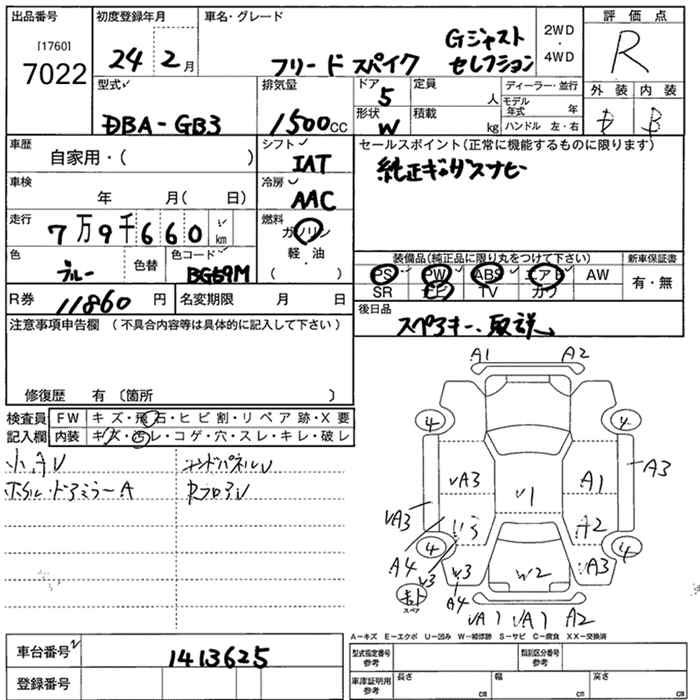 出品番号
[1760]
7022
初度登録年月
24 2月
車名・グレード
フリード スパイク Gジャスト
セレクション
2WD
・
4WD
評価点
R
外装 内装
D B
型式
DBA-GB3
排気量
1500cc
ドア
5
形状
W
定員
人
積載
kg
ディーラー・並行
モデル年式 年
ハンドル 左・右
車歴
自家用・( )
シフト
IAT
セールスポイント(正常に機能するものに限ります)
車検
年 月(日)
冷房
AAC
走行
7万9千660 km
燃料
ガソリン
軽・油
( )
色
ブルー
色替
色コード
BG59M
装備品(純正品に限り丸をつけて下さい)
新車保証書
PS PW ABS エアB AW
SR TV カワ
有・無
R券 11860円
名変期限 月 日
後日品
スペアキー、取説
注意事項申告欄 (不具合内容等は具体的に記入して下さい)
修復歴 有 〔箇所 〕
検査員
記入欄
FW キズ・飛石・ヒビ割・リペア跡・X要
内装 キズ・汚レ・コゲ・穴・スレ・キレ・破レ
A1 A2
4 4
VA3 A1 A3
V1
VA3 A2
4 4
A4 V3 W3 W2 VA3
A4
スペア
VA1 VA1 A2
A-キズ E-エクボ U-凹み W-補修跡 S-サビ C-腐食 XX-交換済
車台番号
1413625
登録番号
型式指定番号
参考
類別区分番号
参考
車庫証明用
参考
長さ cm
幅 cm
高さ cm